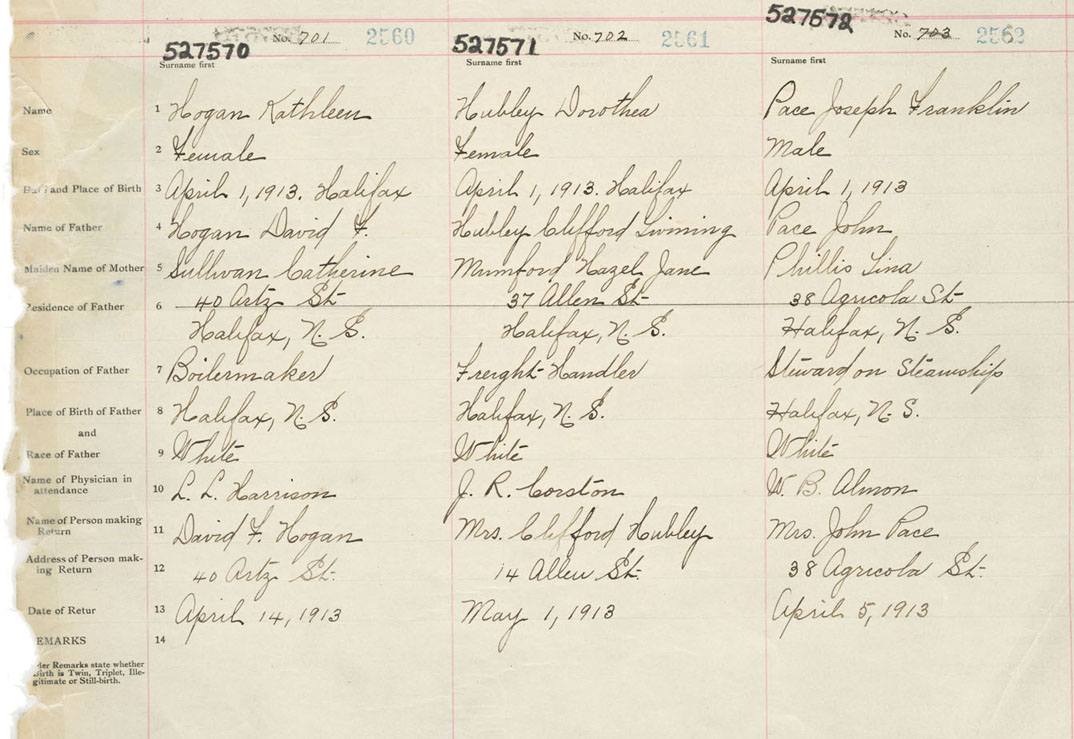 527570 No. 701 2560 527571 No. 702 2561 527572 No. 703 2562
Surname first Surname first Surname first
Name 1 Hogan Kathleen Hubley Dorothea Pace Joseph Franklin
Sex 2 Female Female Male
and Place of Birth 3 April 1, 1913. Halifax April 1, 1913. Halifax April 1, 1913
Name of Father 4 Hogan David F. Hubley Clifford Pace John
Maiden Name of Mother 5 Sullivan Catherine Mumford Hazel Jane Phillis Lina
Residence of Father 6 40 Artz St. 37 Allen St. 38 Agricola St.
Halifax, N. S. Halifax, N. S. Halifax, N. S.
Occupation of Father 7 Boilermaker Freight Handler Steward on Steamship
Place of Birth of Father 8 Halifax, N. S. Halifax, N. S. Halifax, N. S.
and
Race of Father 9 White White White
Name of Physician in
attendance 10 L. L. Harrison J. R. Corston W. B. Almon
Name of Person making
Return 11 David F. Hogan Mrs. Clifford Hubley Mrs. John Pace
Address of Person mak-
ing Return 12 40 Artz St. 14 Allen St. 38 Agricola St.
Date of Retur 13 April 14, 1913 May 1, 1913 April 5, 1913
EMARKS 14
der Remarks state whether
Birth is Twin, Triplet, Ille-
gitimate or Still-birth.